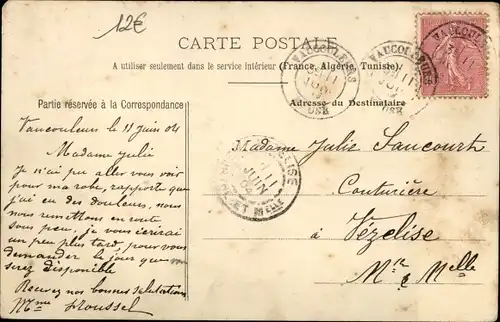 12€
CARTE POSTALE
A utiliser seulement dans le service intérieur (France, Algérie, Tunisie).
Partie réservée à la Correspondance
Adresse du Destinataire
VAUCOULEURS
MEUSE
Vaucouleurs le 11 juin 04
Madame Julie
Je n'ai pu aller vous voir
pour ma robe, rapporte que
j'ai eu des douleurs, nous
nous remettons en route
sous peu, je vous écrirai
un peu plus tard, pour vous
demander le jour que vous
serez disponible
Recevez nos bonnes salutations
Mme Roussel
Madame Julie Saucourt
Couturière
à Vézelise
Mthe & Melle
11
JUIN